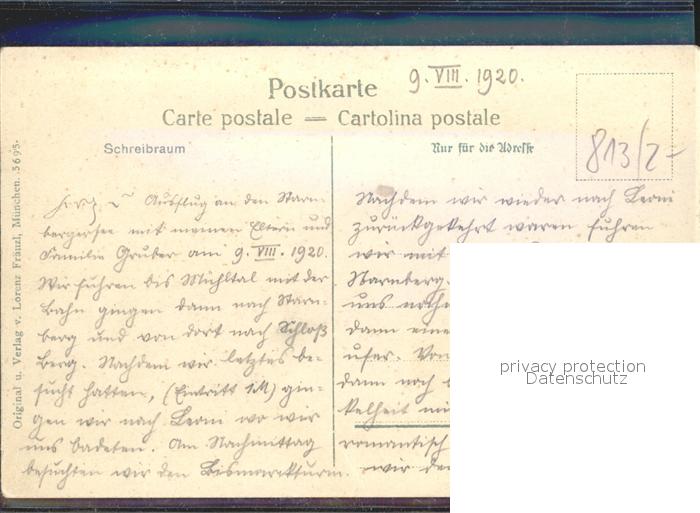 9. VIII. 1920.
Postkarte
Carte postale — Cartolina postale
Schreibraum
Nur für die Adresse
813/2-
Original u. Verlag v. Lorenz Fränzl, München. 5695.
Ausflug an den Starn-
bergersee mit meinen Eltern und
Familie Gruber am 9. VIII. 1920.
Wir fuhren bis Mühltal mit der
Bahn gingen dann nach Starn-
berg und von dort nach Schloß
Berg. Nachdem wir letztes be-
sucht hatten, (Eintritt 1M) gin-
gen wir nach Leoni wo wir
uns badeten. Am Nachmittag
besuchten wir den Bismarckturm.
Nachdem wir wieder nach Leoni
zurückgekehrt waren fuhren
wir mit
Starnberg.
uns
dann eine
ufer. Von
dann noch
kelheit mi
romantisch
wir de
privacy protection
Datenschutz